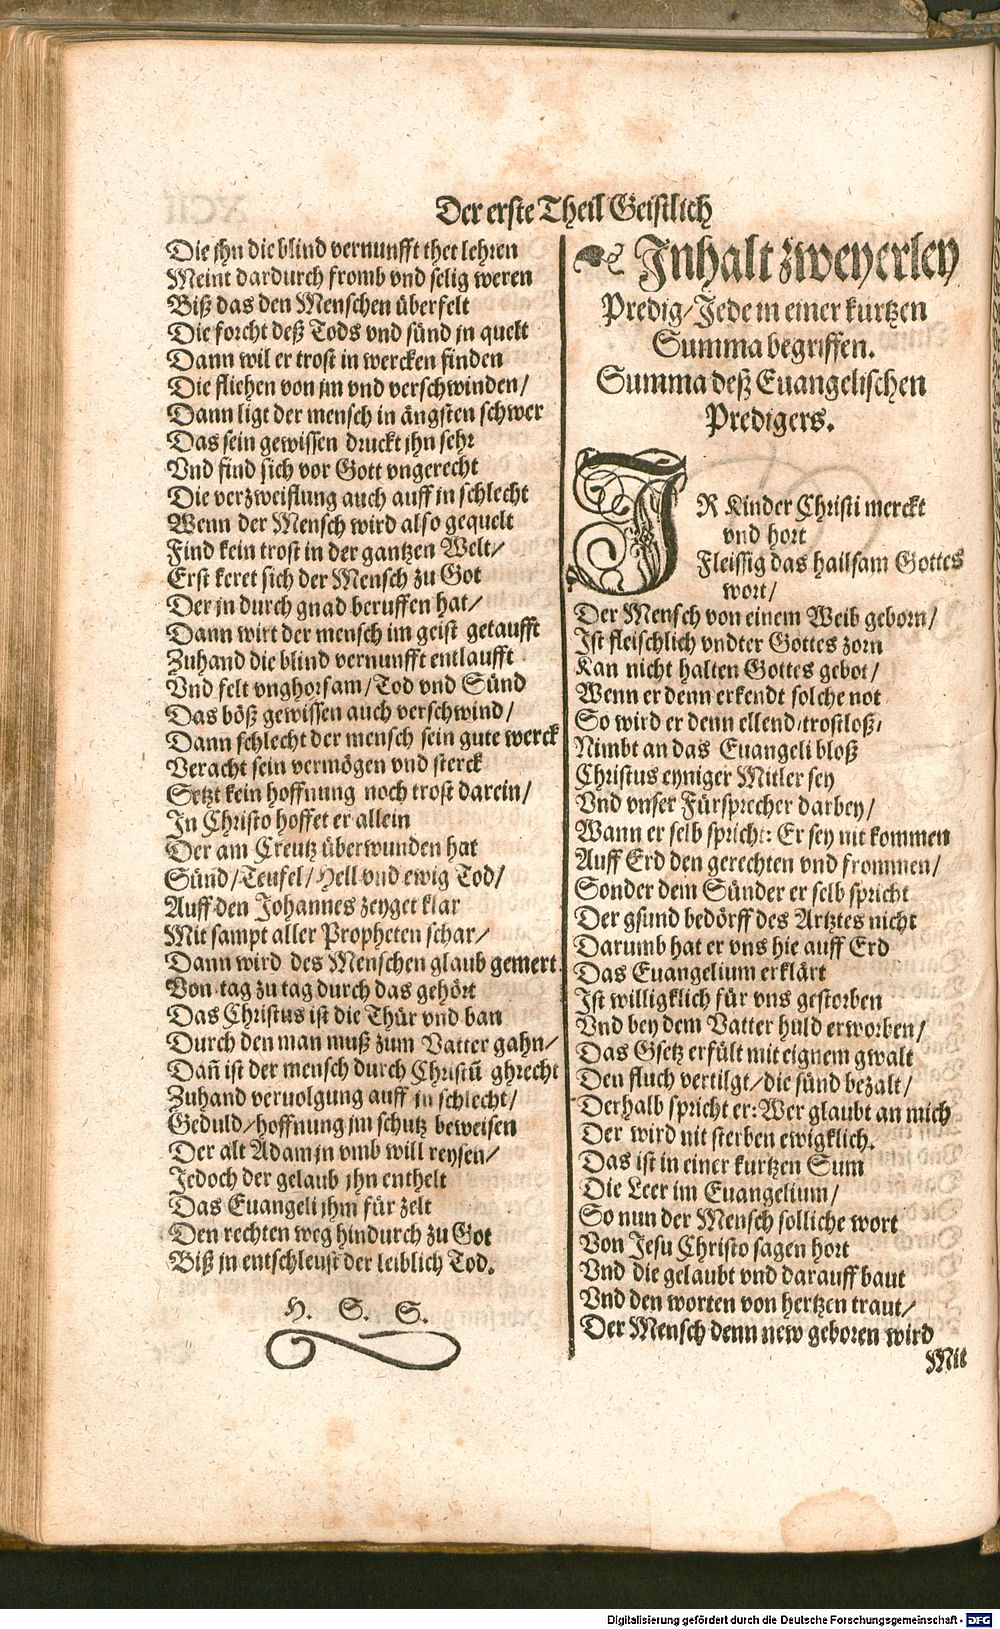 Der erste Theil Geistlich
Die jhn die blind vernunfft thet lehren
Meint dardurch fromb vnd selig weren
Biß das den Menschen überfelt
Die forcht deß Tods vnd sünd jn quelt
Dann wil er trost in wercken finden
Die fliehen von jm vnd verschwinden/
Dann ligt der mensch in ängsten schwer
Das sein gewissen druckt jhn sehr
Vnd find sich vor Gott vngerecht
Die verzweiflung auch auff jn schlecht
Wenn der Mensch wird also gequelt
Find kein trost in der gantzen Welt/
Erst keret sich der Mensch zu Got
Der jn durch gnad beruffen hat/
Dann wirt der mensch im geist getaufft
Zuhand die blind vernunfft entlaufft
Vnd felt vnghorsam/Tod vnd Sünd
Das böß gewissen auch verschwind/
Dann schlecht der mensch sein gute werck
Veracht sein vermögen vnd sterck
Setzt kein hoffnung noch trost darein/
In Christo hoffet er allein
Der am Creutz überwunden hat
Sünd/Teufel/Hell vnd ewig Tod/
Auff den Johannes zeyget klar
Mit sampt aller Propheten schar/
Dann wird des Menschen glaub gemert
Von tag zu tag durch das gehört
Das Christus ist die Thür vnd ban
Durch den man muß zum Vatter gahn/
Dañ ist der mensch durch Christū ghrecht
Zuhand veruolgung auff jn schlecht/
Geduld/hoffnung jm schutz beweisen
Der alt Adam jn vmb will reysen/
Jedoch der gelaub jhn enthelt
Das Euangeli jhm für zelt
Den rechten weg hindurch zu Got
Biß jn entschleust der leiblich Tod.
H. S. S.
Inhalt zweyerley
Predig/Jede in einer kurtzen
Summa begriffen.
Summa deß Euangelischen
Predigers.
IR Kinder Christi merckt
vnd hort
Fleissig das hailsam Gottes
wort/
Der Mensch von einem Weib geborn/
Ist fleischlich vndter Gottes zorn
Kan nicht halten Gottes gebot/
Wenn er denn erkendt solche not
So wird er denn ellend/trostloß/
Nimbt an das Euangeli bloß
Christus eyniger Mitler sey
Vnd vnser Fürsprecher darbey/
Wann er selb spricht: Er sey nit kommen
Auff Erd den gerechten vnd frommen/
Sonder dem Sünder er selb spricht
Der gsund bedörff des Artztes nicht
Darumb hat er vns hie auff Erd
Das Euangelium erklärt
Ist willigklich für vns gestorben
Vnd bey dem Vatter huld erworben/
Das Gsetz erfült mit eignem gwalt
Den fluch vertilgt/die sünd bezalt/
Derhalb spricht er: Wer glaubt an mich
Der wird nit sterben ewigklich.
Das ist in einer kurtzen Sum
Die Leer im Euangelium/
So nun der Mensch solliche wort
Von Jesu Christo sagen hort
Vnd die gelaubt vnd darauff baut
Vnd den worten von hertzen traut/
Der Mensch denn new geboren wird
Mit
Digitalisierung gefördert durch die Deutsche Forschungsgemeinschaft - DFG